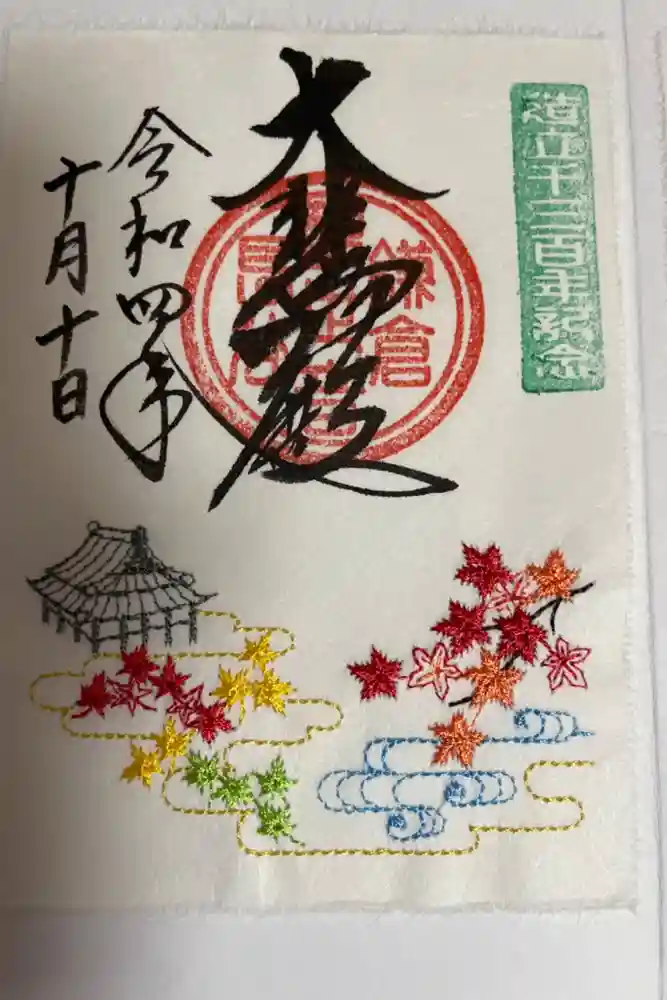 造立千三百年紀念
大悲殿
鎌倉
長谷
令和四年
十月十日